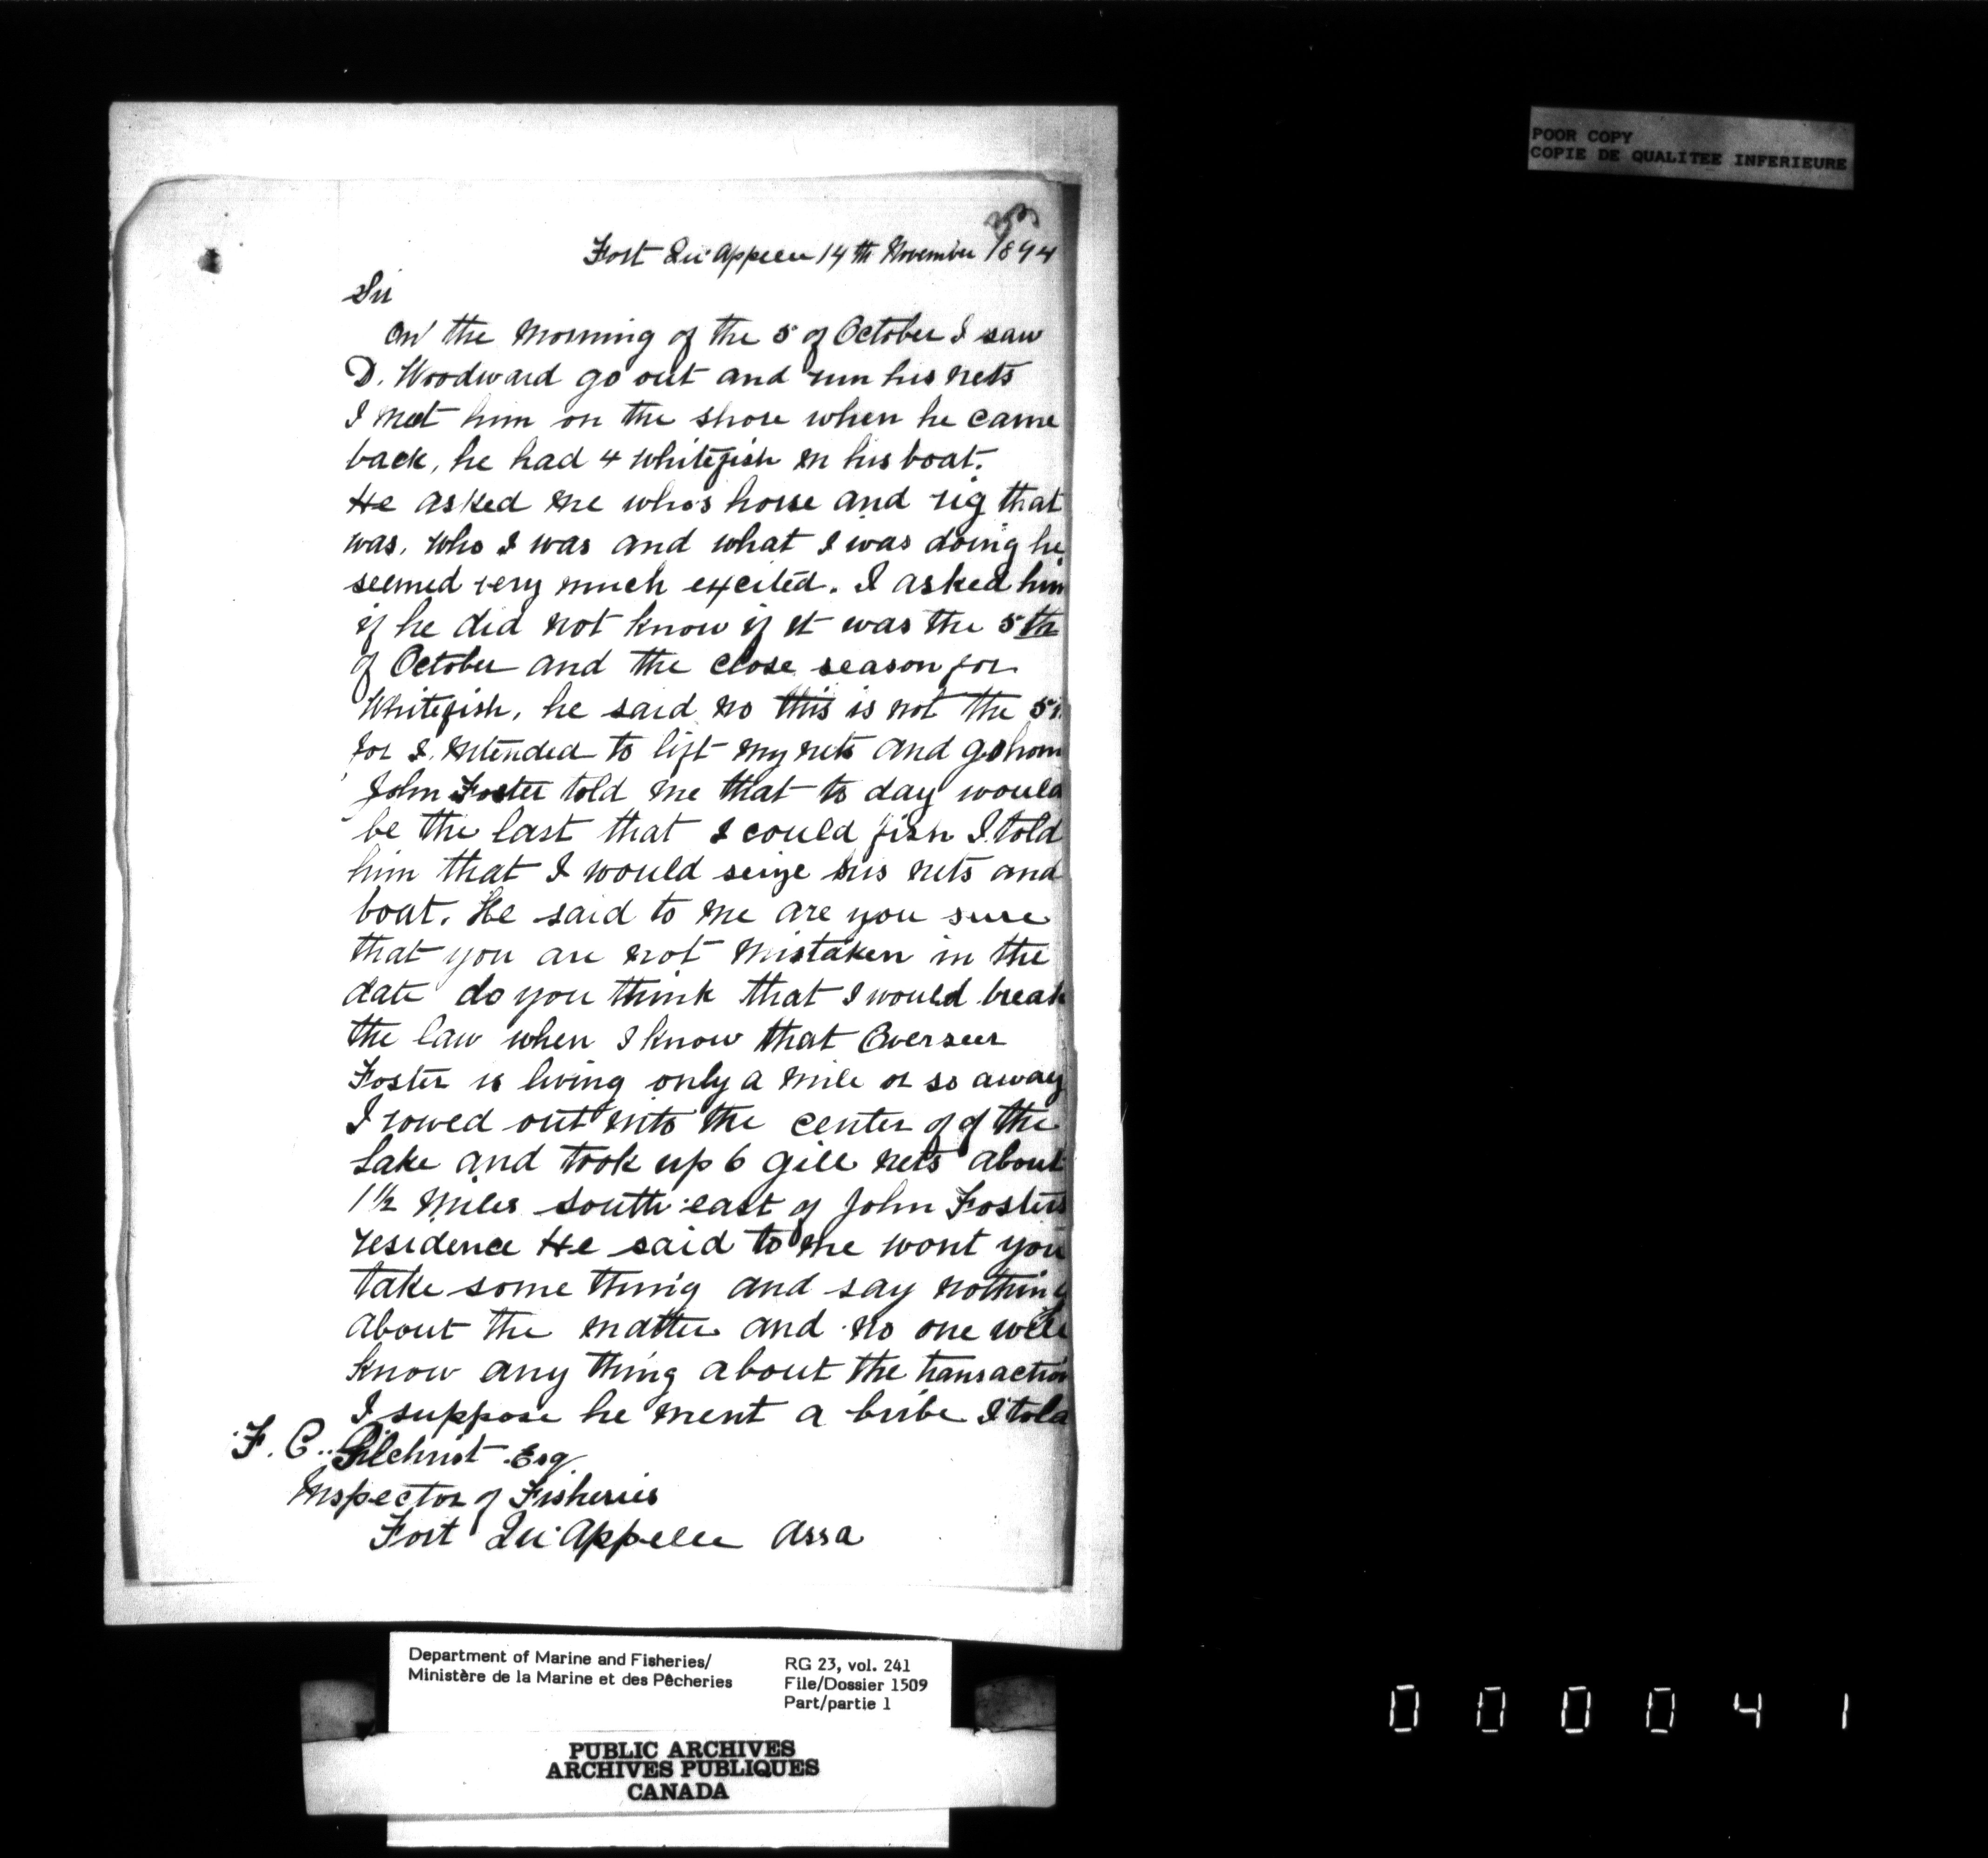 POOR COPY
COPIE DE QUALITEE INFERIEURE
Fort Qu'Appelle 14th November 1894
Sir
On the Morning of the 5 of October I saw
D. Woodward go out and run his nets
I met him on the shore when he came
back, he had 4 whitefish in his boat.
He asked me who's horse and rig that
was, who I was and what I was doing he
seemed very much excited. I asked him
if he did not know if it was the 5th
of October and the close season for
Whitefish, he said no this is not the 5th
for I intended to lift my nets and go hom
John Foster told me that to day would
be the last that I could fish I told
him that I would seize his nets and
boat. He said to me are you sure
that you are not mistaken in the
date do you think that I would break
the law when I know that Overseer
Foster is living only a mile or so away
I rowed out into the center of of the
Lake and took up 6 gill nets about
1½ miles south east of John Fosters
residence He said to me wont you
take some thing and say nothing
about the matter and no one will
know any thing about the transaction
I suppose he ment a bribe I told
F. C. Gilchrist Esq
Inspector of Fisheries
Fort Qu'Appelle Assa
Department of Marine and Fisheries/
Ministère de la Marine et des Pêcheries
RG 23, vol. 241
File/Dossier 1509
Part/partie 1
PUBLIC ARCHIVES
ARCHIVES PUBLIQUES
CANADA
000041